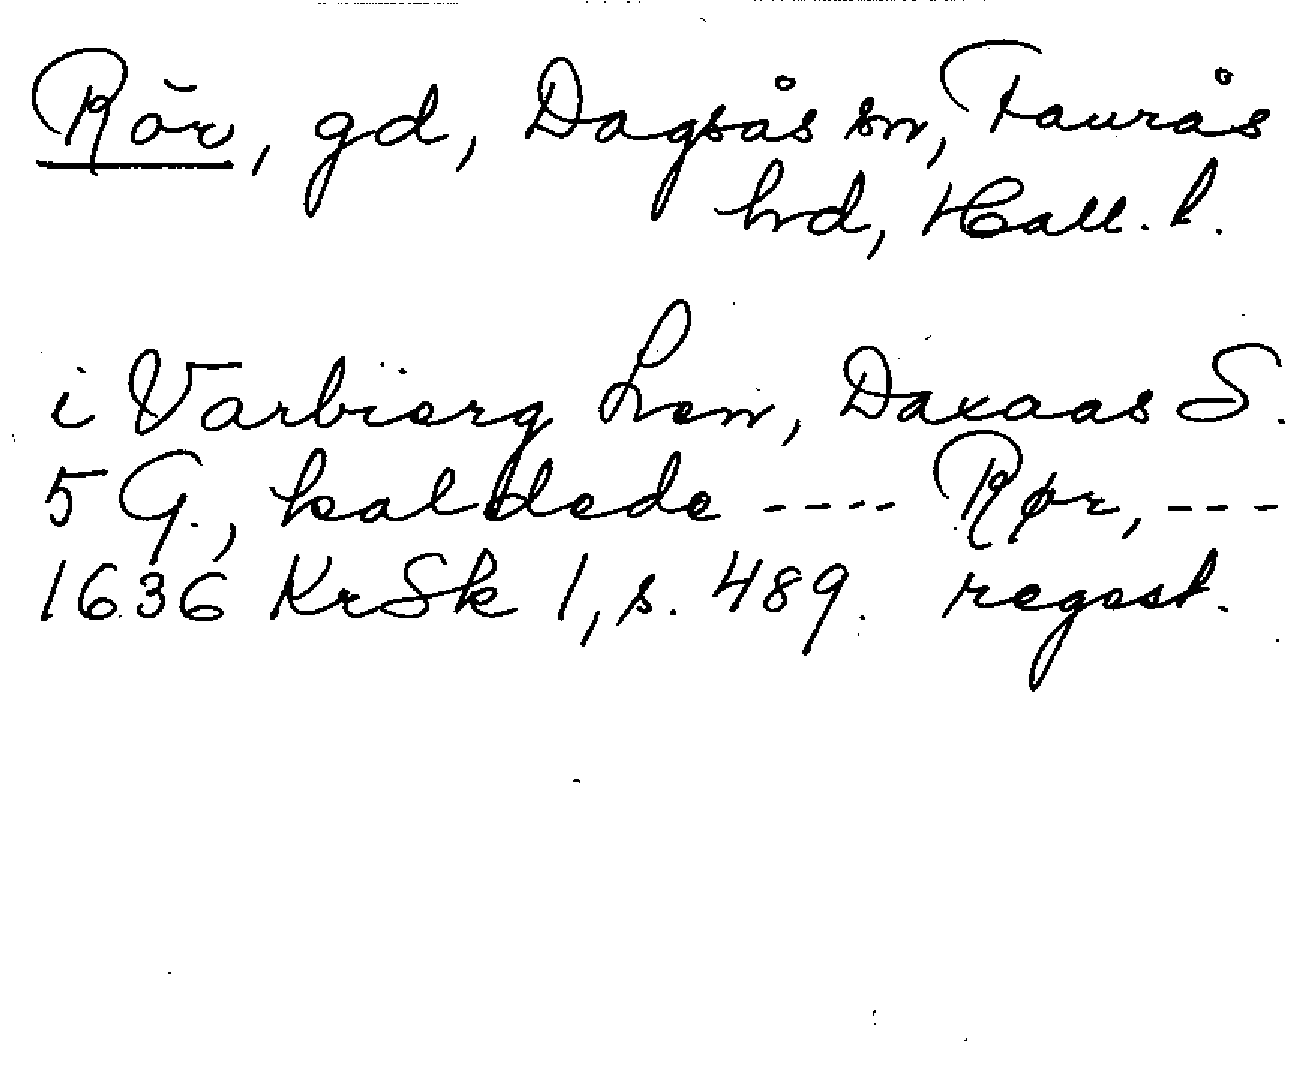 Rör, gd, Dagsås sn, Faurås
hrd, Hall. l.
i Varbierg Len, Daxaas S.
5 G., kaldede ---- Rør, ---
1636 KrSk 1, s. 489. regest.